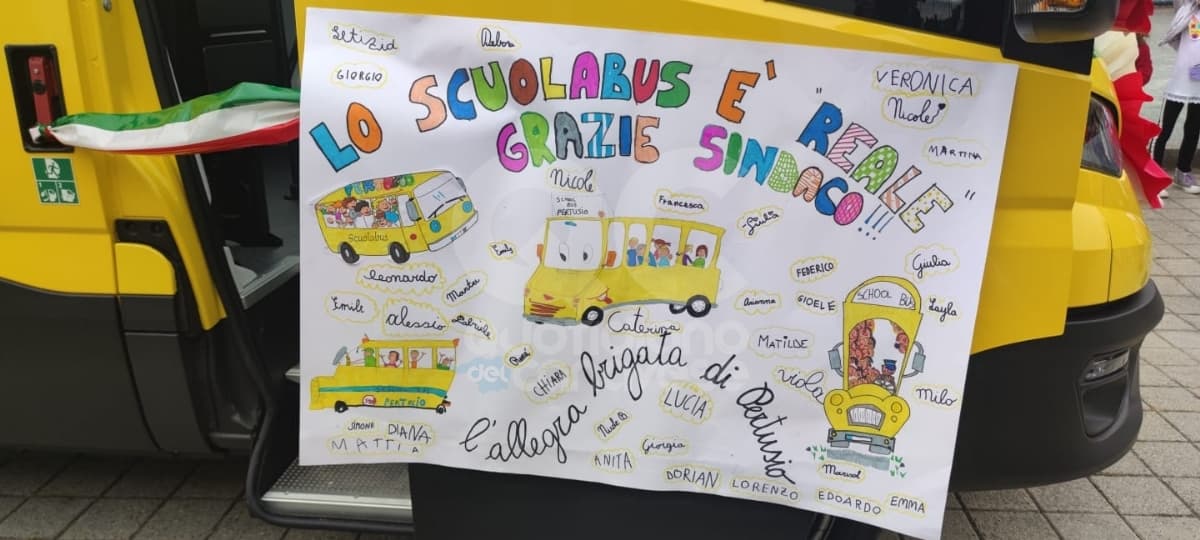 Letizia
Debora
GIORGIO
LO SCUOLABUS E' "REALE"
GRAZIE SINDACO!!!!
VERONICA
Nicole
MARTINA
PERTUSIO
Scuolabus
Nicole
SCHOOL BUS PERTUSIO
Francesca
-Giulia
Emily
Leonardo
Emile
Alessio
Gabriele
Caterina
FEDERICO
Giulia
Arianna
GIOELE
SCHOOL BUS
Layla
MATILDE
viola
Milo
CHIARA
L'allegra brigata di Pertusio
LUCIA
Nicole B
SIMONE
DIANA
MATTIA
Giorgia
ANITA
DORIAN
LORENZO
Marisol
EDOARDO
EMMA
quotidiano
del canavese